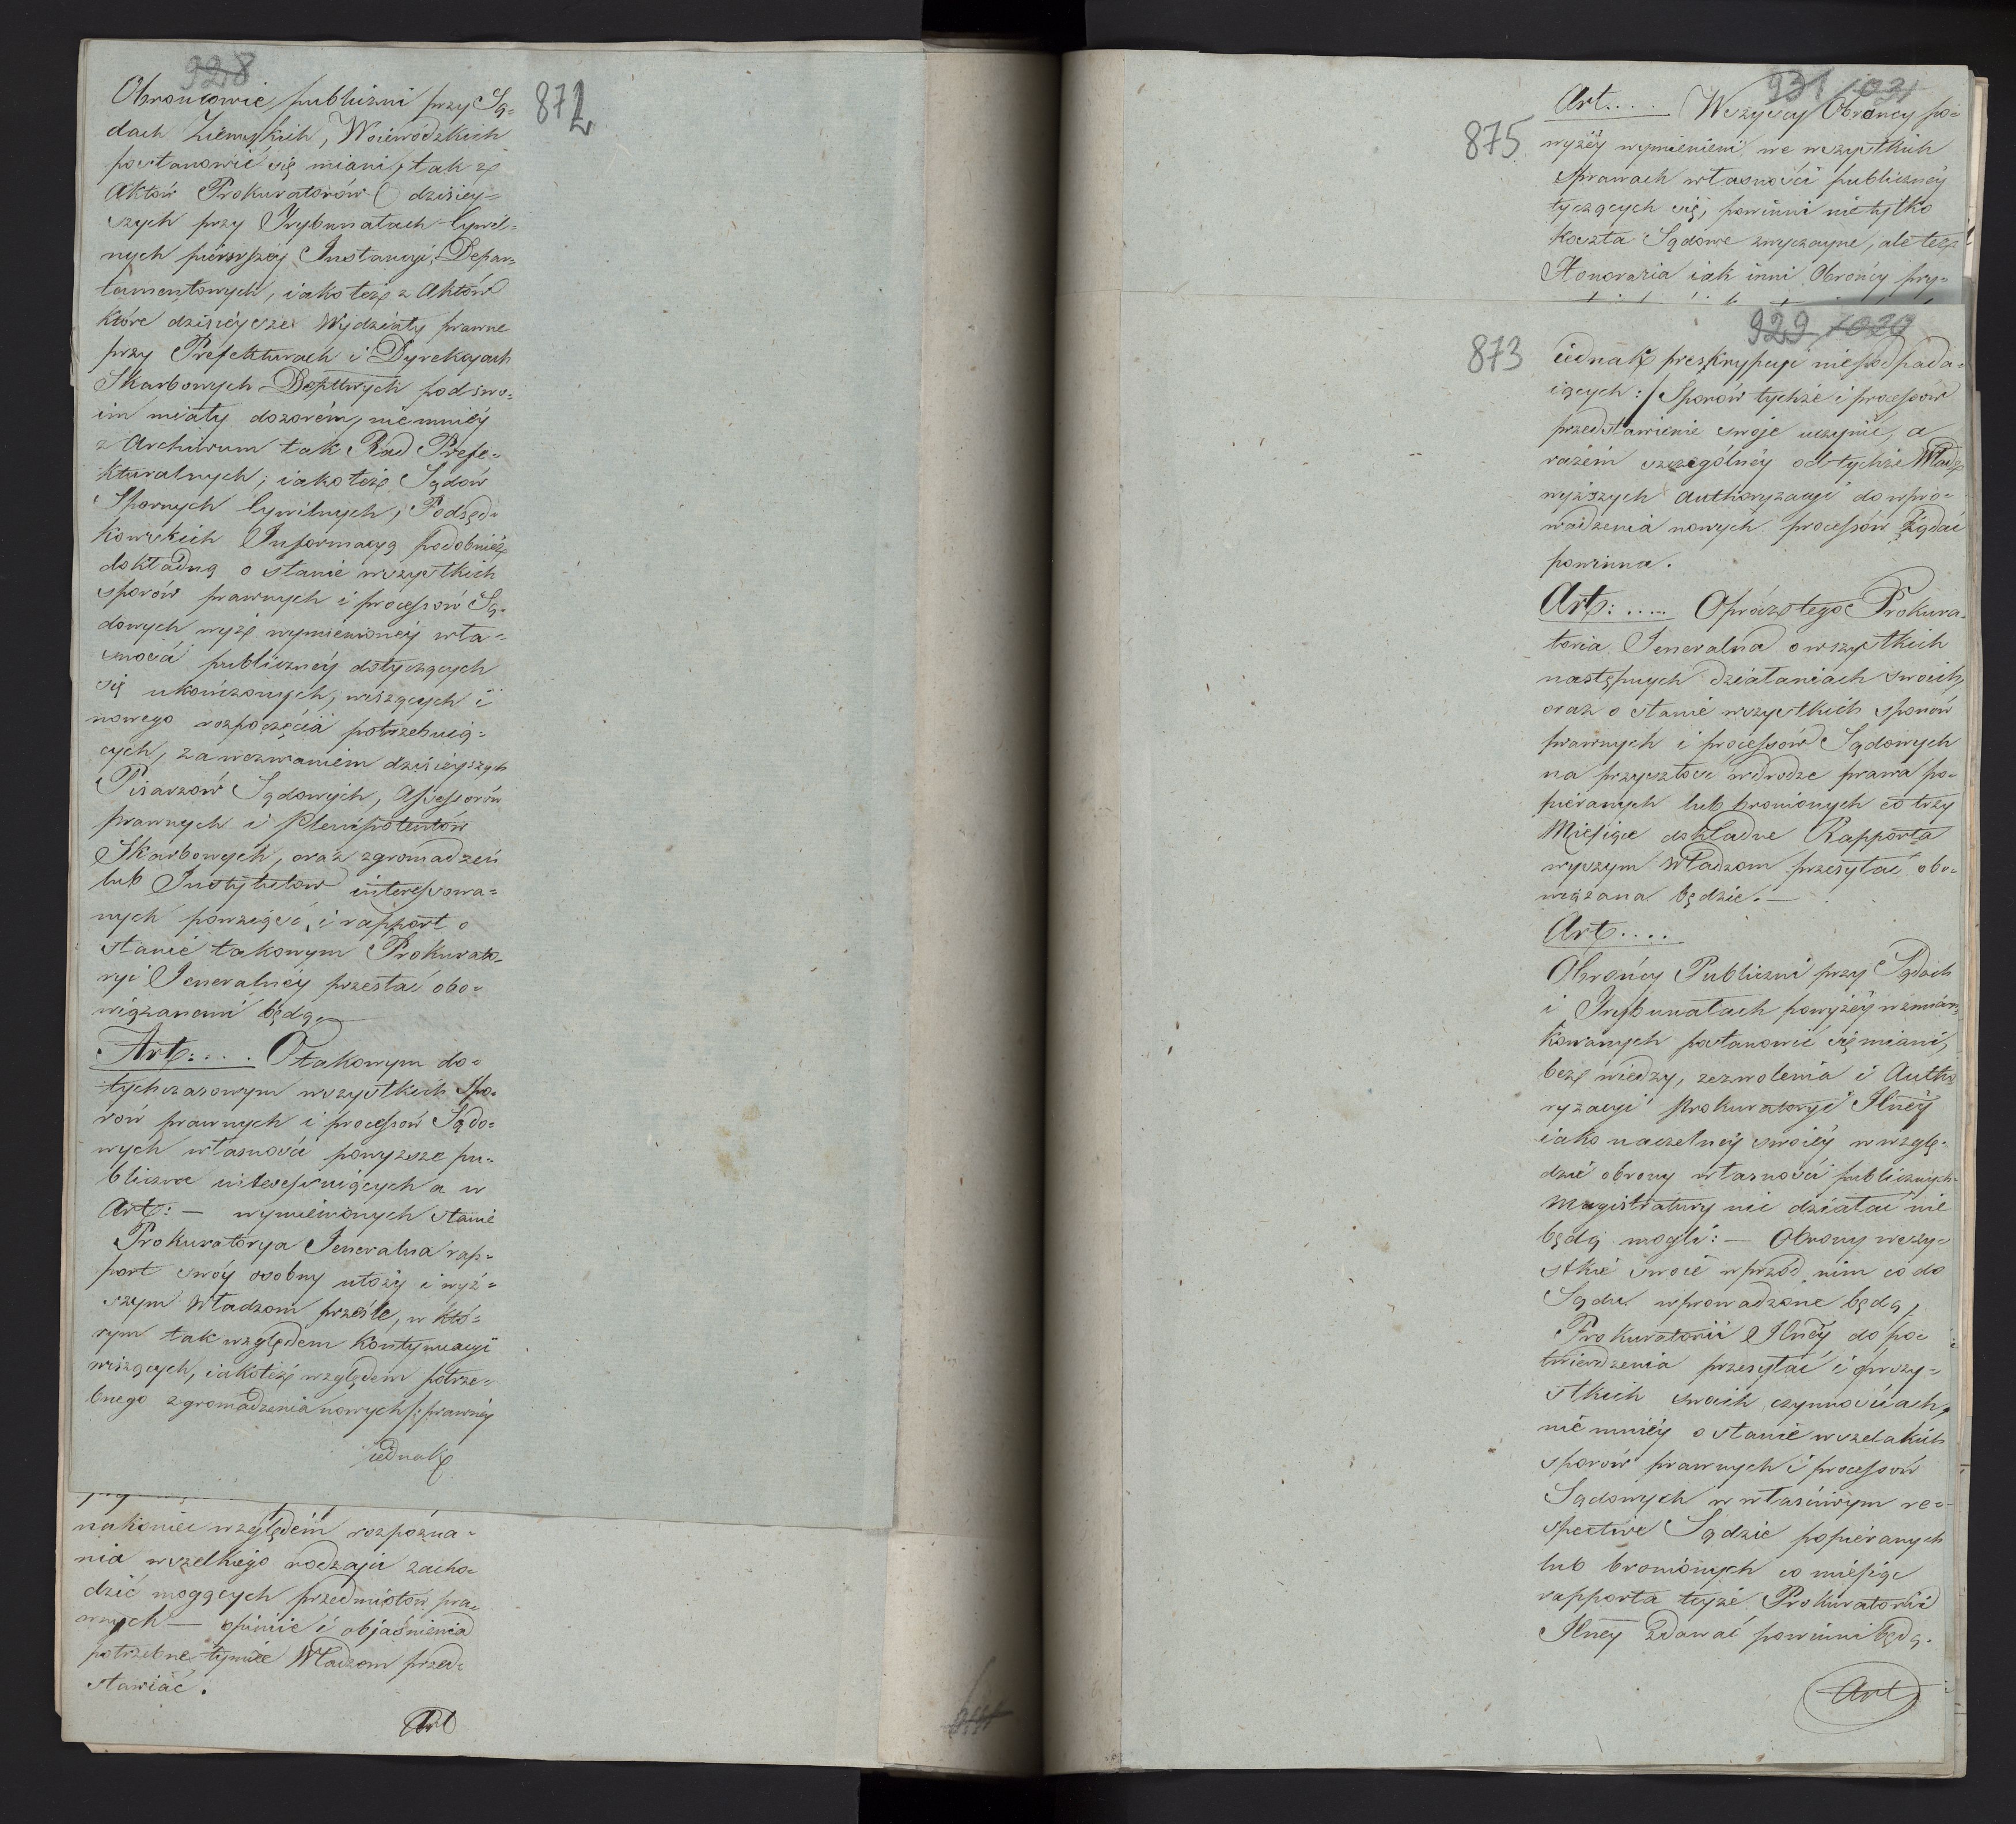 928
872
Obroncowie publiczni przy Są-
dach Ziemskich, Woiewódzkich
postanowić się miani, tak z
Aktów Prokuratorów dzisiey-
szych przy Trybunałach Cywil-
nych pierwszéy Instancyi Depar-
tamentowych, iako też z Aktów
które dzisieysze Wydziały prawne
przy Prefekturach i Dyrekcyach
Skarbowych Deptwych pod swo-
im miały dozorem, niemniéy
z Archiwum tak Rad Prefe-
kturalnych, iako też Sądów
Spornych Cywilnych, Podsęd-
kowskich Informacyą podobnież
dokładną o stanie wszystkich
sporów prawnych i processów Są-
dowych wyż wymienionéy wła-
sności publicznéy dotyczących
się ukończonych, wiszących i
nowego rozpoczęcia potrzebuią-
cych, za wezwaniem dzisieyszych
Pisarzów Sądowych, Assessorów
prawnych i Plenipotentów
Skarbowych, oraz zgromadzeń
lub Instytutów interessowa-
nych powziąść, i rapport o
stanie takowym Prokurato-
ryi Jeneralnéy przesłać obo-
wiązanemi będą.
Art: .... O takowym do-
tychczasowym wszystkich spo-
rów prawnych i processów Sądo-
wych własności powyższe pu-
bliczne interessuiących a w
Art: — wymienionych stanie
Prokuratorya Jeneralna rap-
port swóy osobny ułoży i wyż-
szym Władzom prześle, w któ-
rym tak względem kontynuacyi
wiszących, iakoteż względem potrze-
bnego zgromadzenia nowych /: prawnéy
iednak
nakoniec względem rozpozna-
nia wszelkiego rodzaju zacho-
dzić mogących przedmiotów pra-
wnych — opinie i objaśnienia
potrzebne tymże Władzom przed-
stawiać.
Art
931 1031
875
Art.... Wszyscy Obrońcy po-
wyżéy wymienieni we wszystkich
sprawach własności publicznéy
tyczących się, powinni nietylko
koszta Sądowe zwyczayne, ale też
Honoraria iak inni Obrońcy pry-
929 1029
873
iednak preskrypcyi niepodpada-
iących :/ Sporów tychże i processów
przedstawienie swoje uczynić, a
razem szczególnéy od tychże Władz
wyższych Authoryzacyi do wpro-
wadzenia nowych processów żądać
powinna.
Art: ..... Oprócz tego Prokura-
toria Jeneralna o wszystkich
następnych działaniach swoich,
oraz o stanie wszystkich sporów
prawnych i processów Sądowych
na przyszłość w drodze prawa po-
pieranych lub bronionych co trzy
Miesiące dokładne Rapporta
wyższym Władzom przesyłać obo-
wiązana będzie. —
Art....
Obrońcy Publiczni przy Sądach
i Trybunałach powyżéy wzmian-
kowanych postanowić się miani,
bez wiedzy, zezwolenia i Autho
ryzacyi Prokuratoryi Jlnéy
iako naczelnéy swoiéy w wzglę-
dzie obrony własności publicznych
Magistratury nic działać nie
będą mogli: — Obrony wszy-
stkie swoie wprzód nim co do
Sądu wprowadzone będą,
Prokuratorii Jlnéy do po-
twierdzenia przesyłać i o wszy-
stkich swoich czynnościach,
nie mniéy o stanie wszelakich
sporów prawnych i processów
Sądowych w właściwym re-
spective Sądzie popieranych
lub bronionych co miesiąc
rapporta teyże Prokuratorii
Jlnéy zdawać powinni będą.
Art